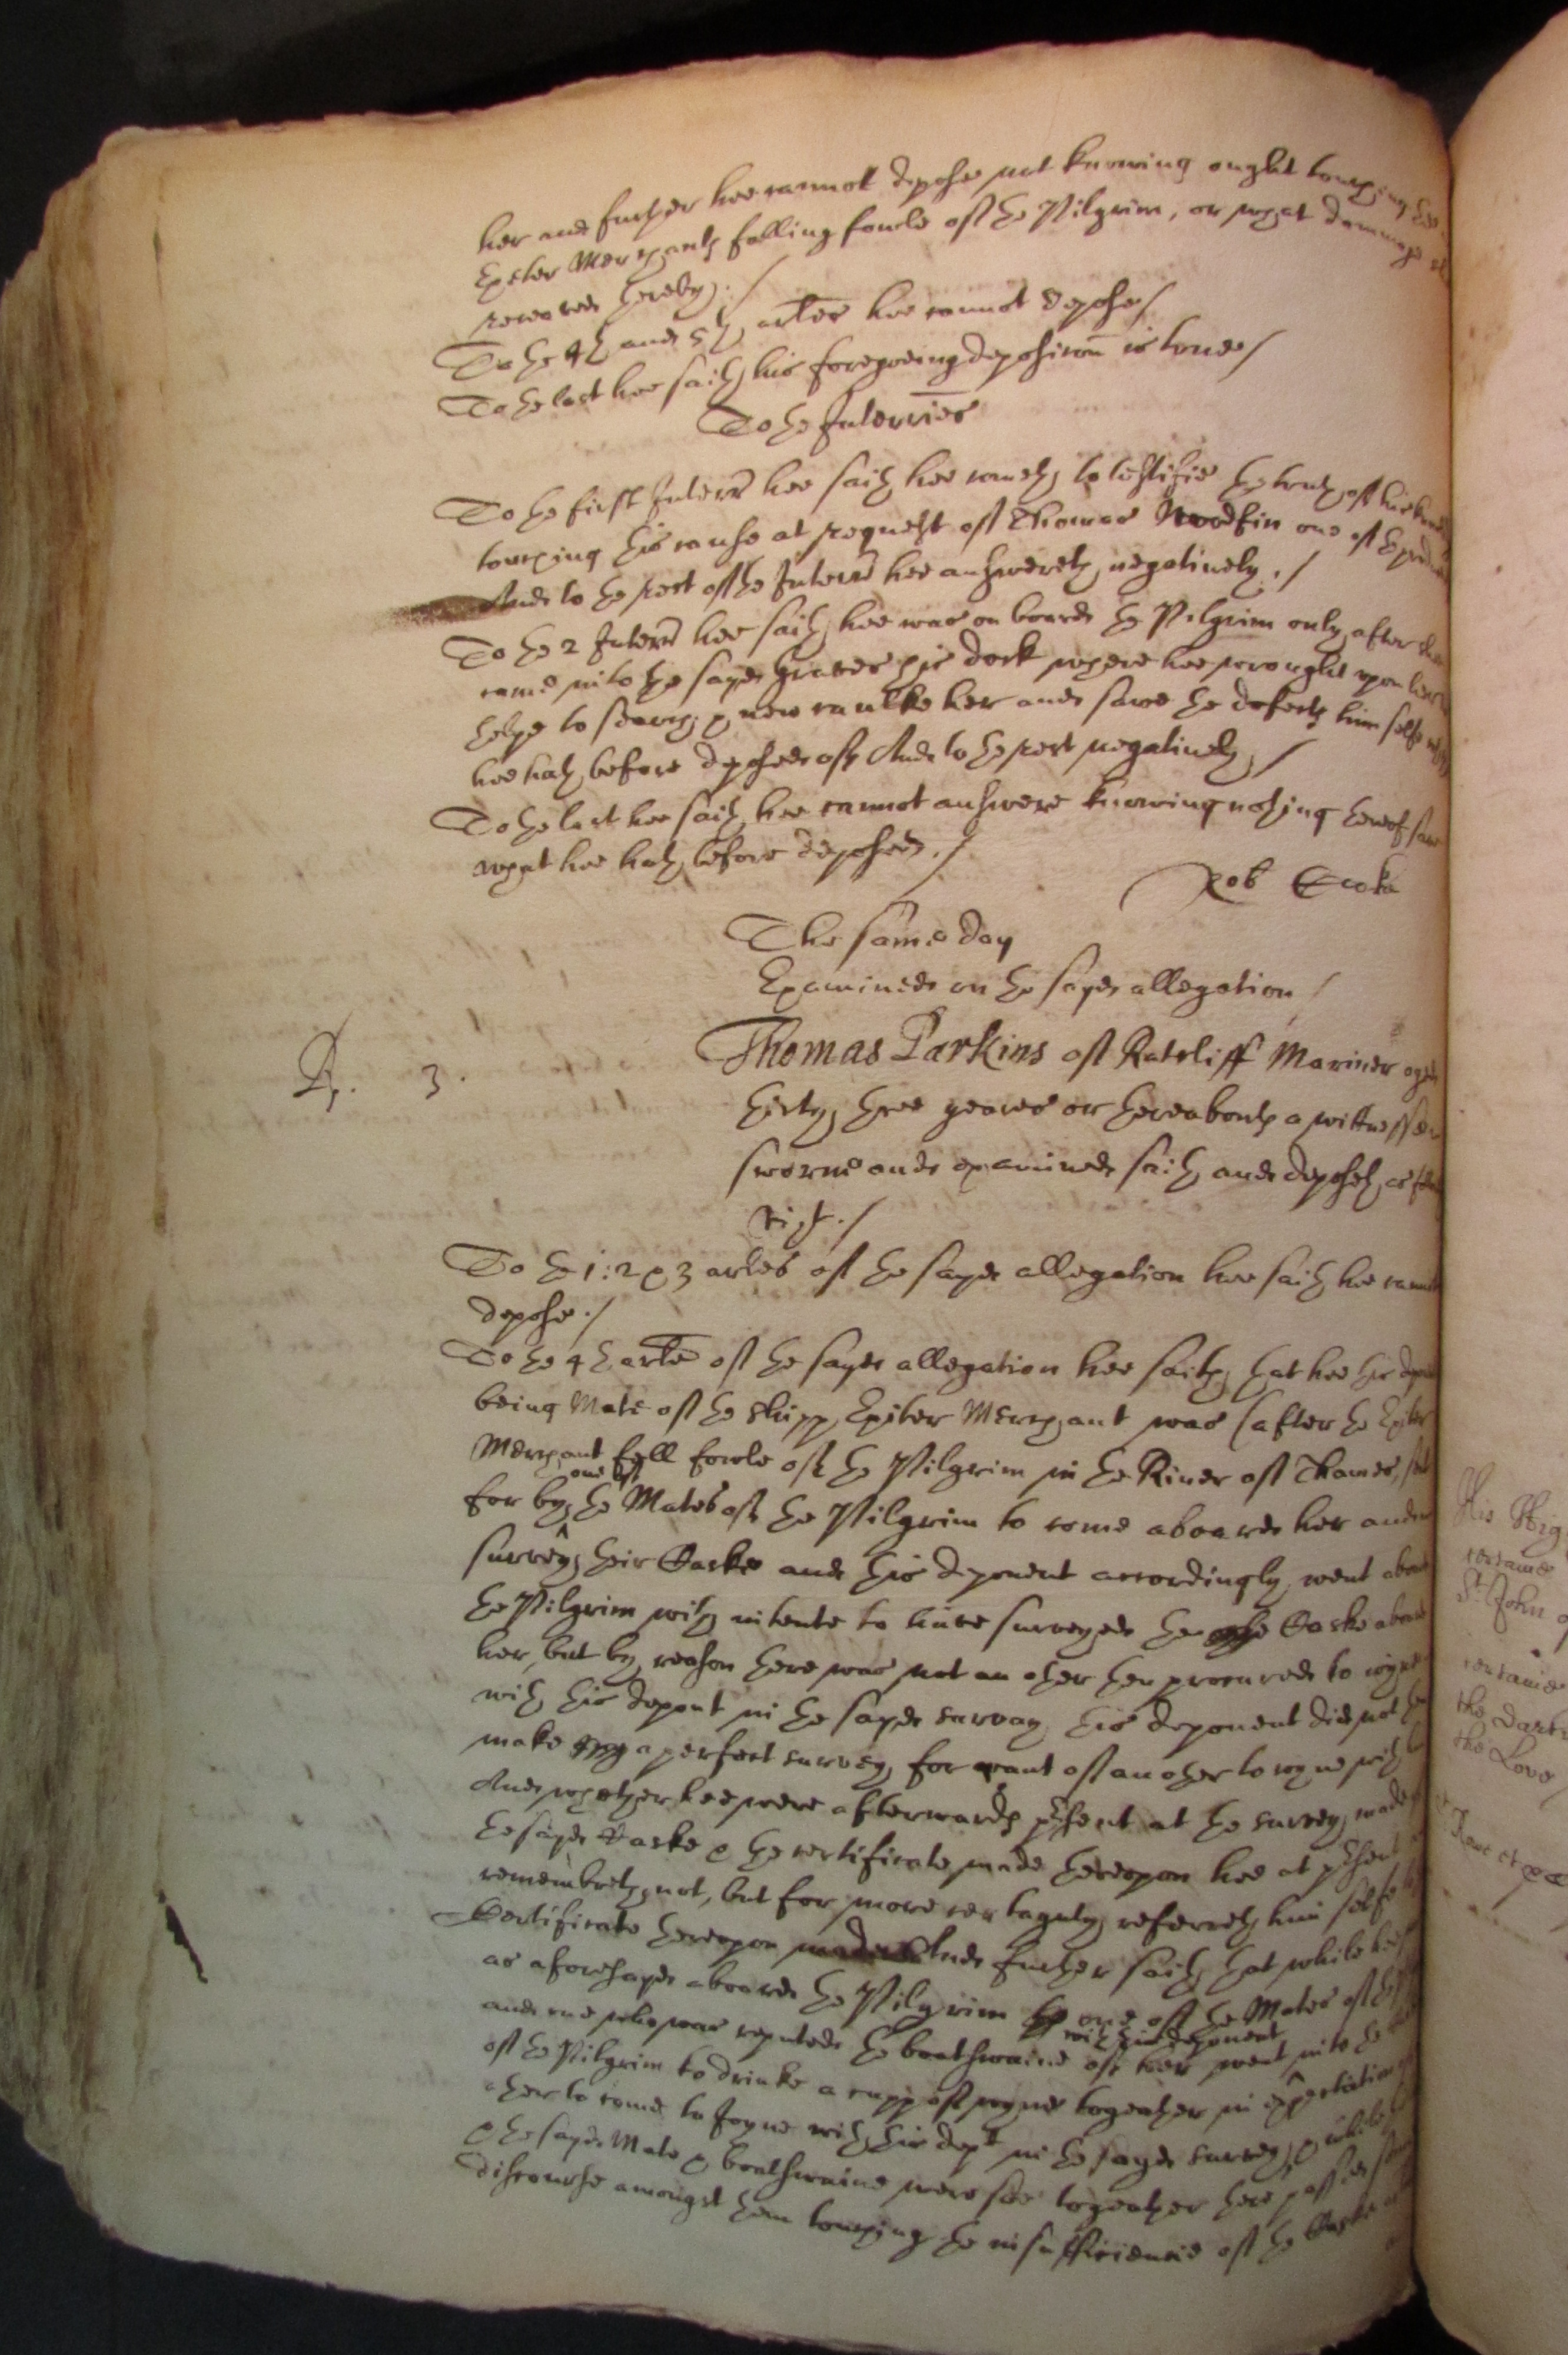 her and further hee cannot depose not knowing ought touching the
Exeter Merchants falling fowle of the Pilgrim, or what dammage
received thereby./
To the 4th and 5th artles hee cannot depose/
To the last hee saith his foregoeing deposicon is true/
To the Interries
To the first Interr hee saith hee cometh to testifie the truth of his
touching this cause at request of Thomas Noedfin one of the
And to the rest of the Interr hee answereth negatively./
To the 2 Interr hee saith hee was on board the Pilgrim only after
came into the sayd Graves his dock where hee wrought upon her
helpe to search & new caulke her and sawe the defects him selfe
hee hath before deposed of And to the rest negatively/
To the last hee saith hee cannot answere knowing nothing thereof save
what hee hath before deposed./
Rob
The same day
Examined on the sayd allegation/
Rp. 3.
Thomas Parkins of Ratcliff Mariner aged
thirty three yeares or thereabouts a wittnesse
sworne and examined saith and deposeth as
./
To the 1: 2 & 3 artles of the sayd allegation hee saith hee cannot
depose./
To the 4th artle of the sayd allegation hee saith that hee this
being Mate of the shipp Exeter Merchant was (after the Exeter
Merchant fell fowle of the Pilgrim in the River of Thames,
for by one of the Mates of the Pilgrim to come aboard her and
survey their Caske and this deponent accordingly went aboard
the Pilgrim with intente to have surveyed the Caske aboard
her, but by reason there was not an other then procured to ioyne
with this depont in the sayd survay this deponent did not then
make any a perfect survey for want of another to ioyne with
And whether hee were afterwards psent at the survey made
the sayd Caske & the certificate made thereupon hee at psent
remembreth not, but for more certaynty referreth him selfe
Certificate thereupon made And further saith that while hee
as aforesayd aboard the Pilgrim one of the Mates of
and one who was reputed the boatswaine of her with this deponent went into the
of the Pilgrim to drinke a cupp of wyne togeather in expectation
other to come to Joyne with this dept in the sayd survey, & while
& the sayd Mate & boatswaine were soe togeather there passed
discourse amongst them touching the insufficiencie of the Caske